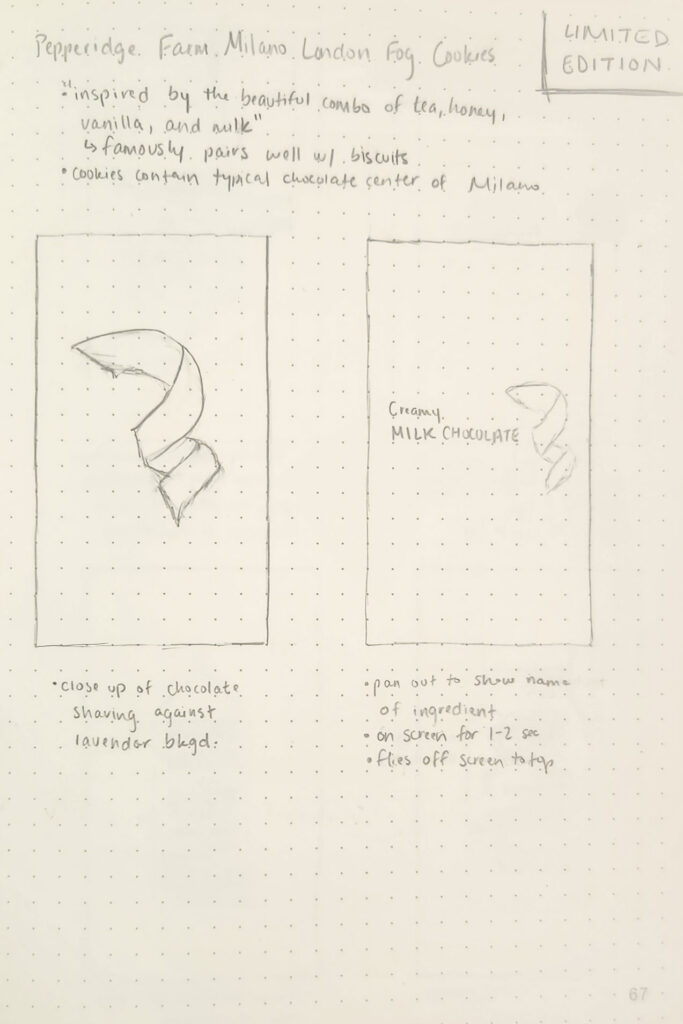 Pepperidge Farm Milano London Fog Cookies
LIMITED
EDITION
• "inspired by the beautiful combo of tea, honey,
vanilla, and milk"
↳ famously pairs well w/ biscuits
• cookies contain typical chocolate center of Milano
Creamy
MILK CHOCOLATE
• close up of chocolate
shaving against
lavendar bkgd.
• pan out to show name
of ingredient
• on screen for 1-2 sec
• flies off screen to top
67